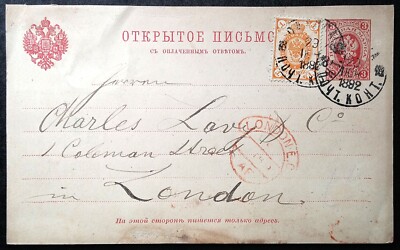 ОТКРЫТОЕ ПИСЬМО
СЪ ОПЛАЧЕННЫМЪ ОТВѢТОМЪ.
3
1892
1892
ПОЧТ. КОНТ.
Herren
Charles Lavy & Co
1 Coleman Street
LONDON
in London
На этой сторонѣ пишется только адресъ.